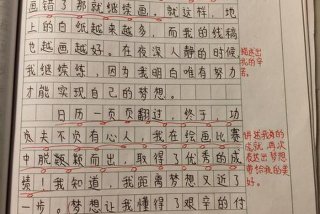 画错了那就继续画。就这样，地
上的白纸越来越多，而我的线稿
也越画越好。在夜深人静的时候
我继续练，因为我明白唯有努力
才能实现自己的梦想。
日历一页页翻过，终于，功
夫不负有心人，我在绘画比赛
中脱颖而出，取得了优秀的成
绩！我知道，我距离梦想又近了
一步。梦想让我懂得了艰辛的付
写出
我的辛
苦。
讲述我的
成就，再次
表达出梦想
带给我的美
好。